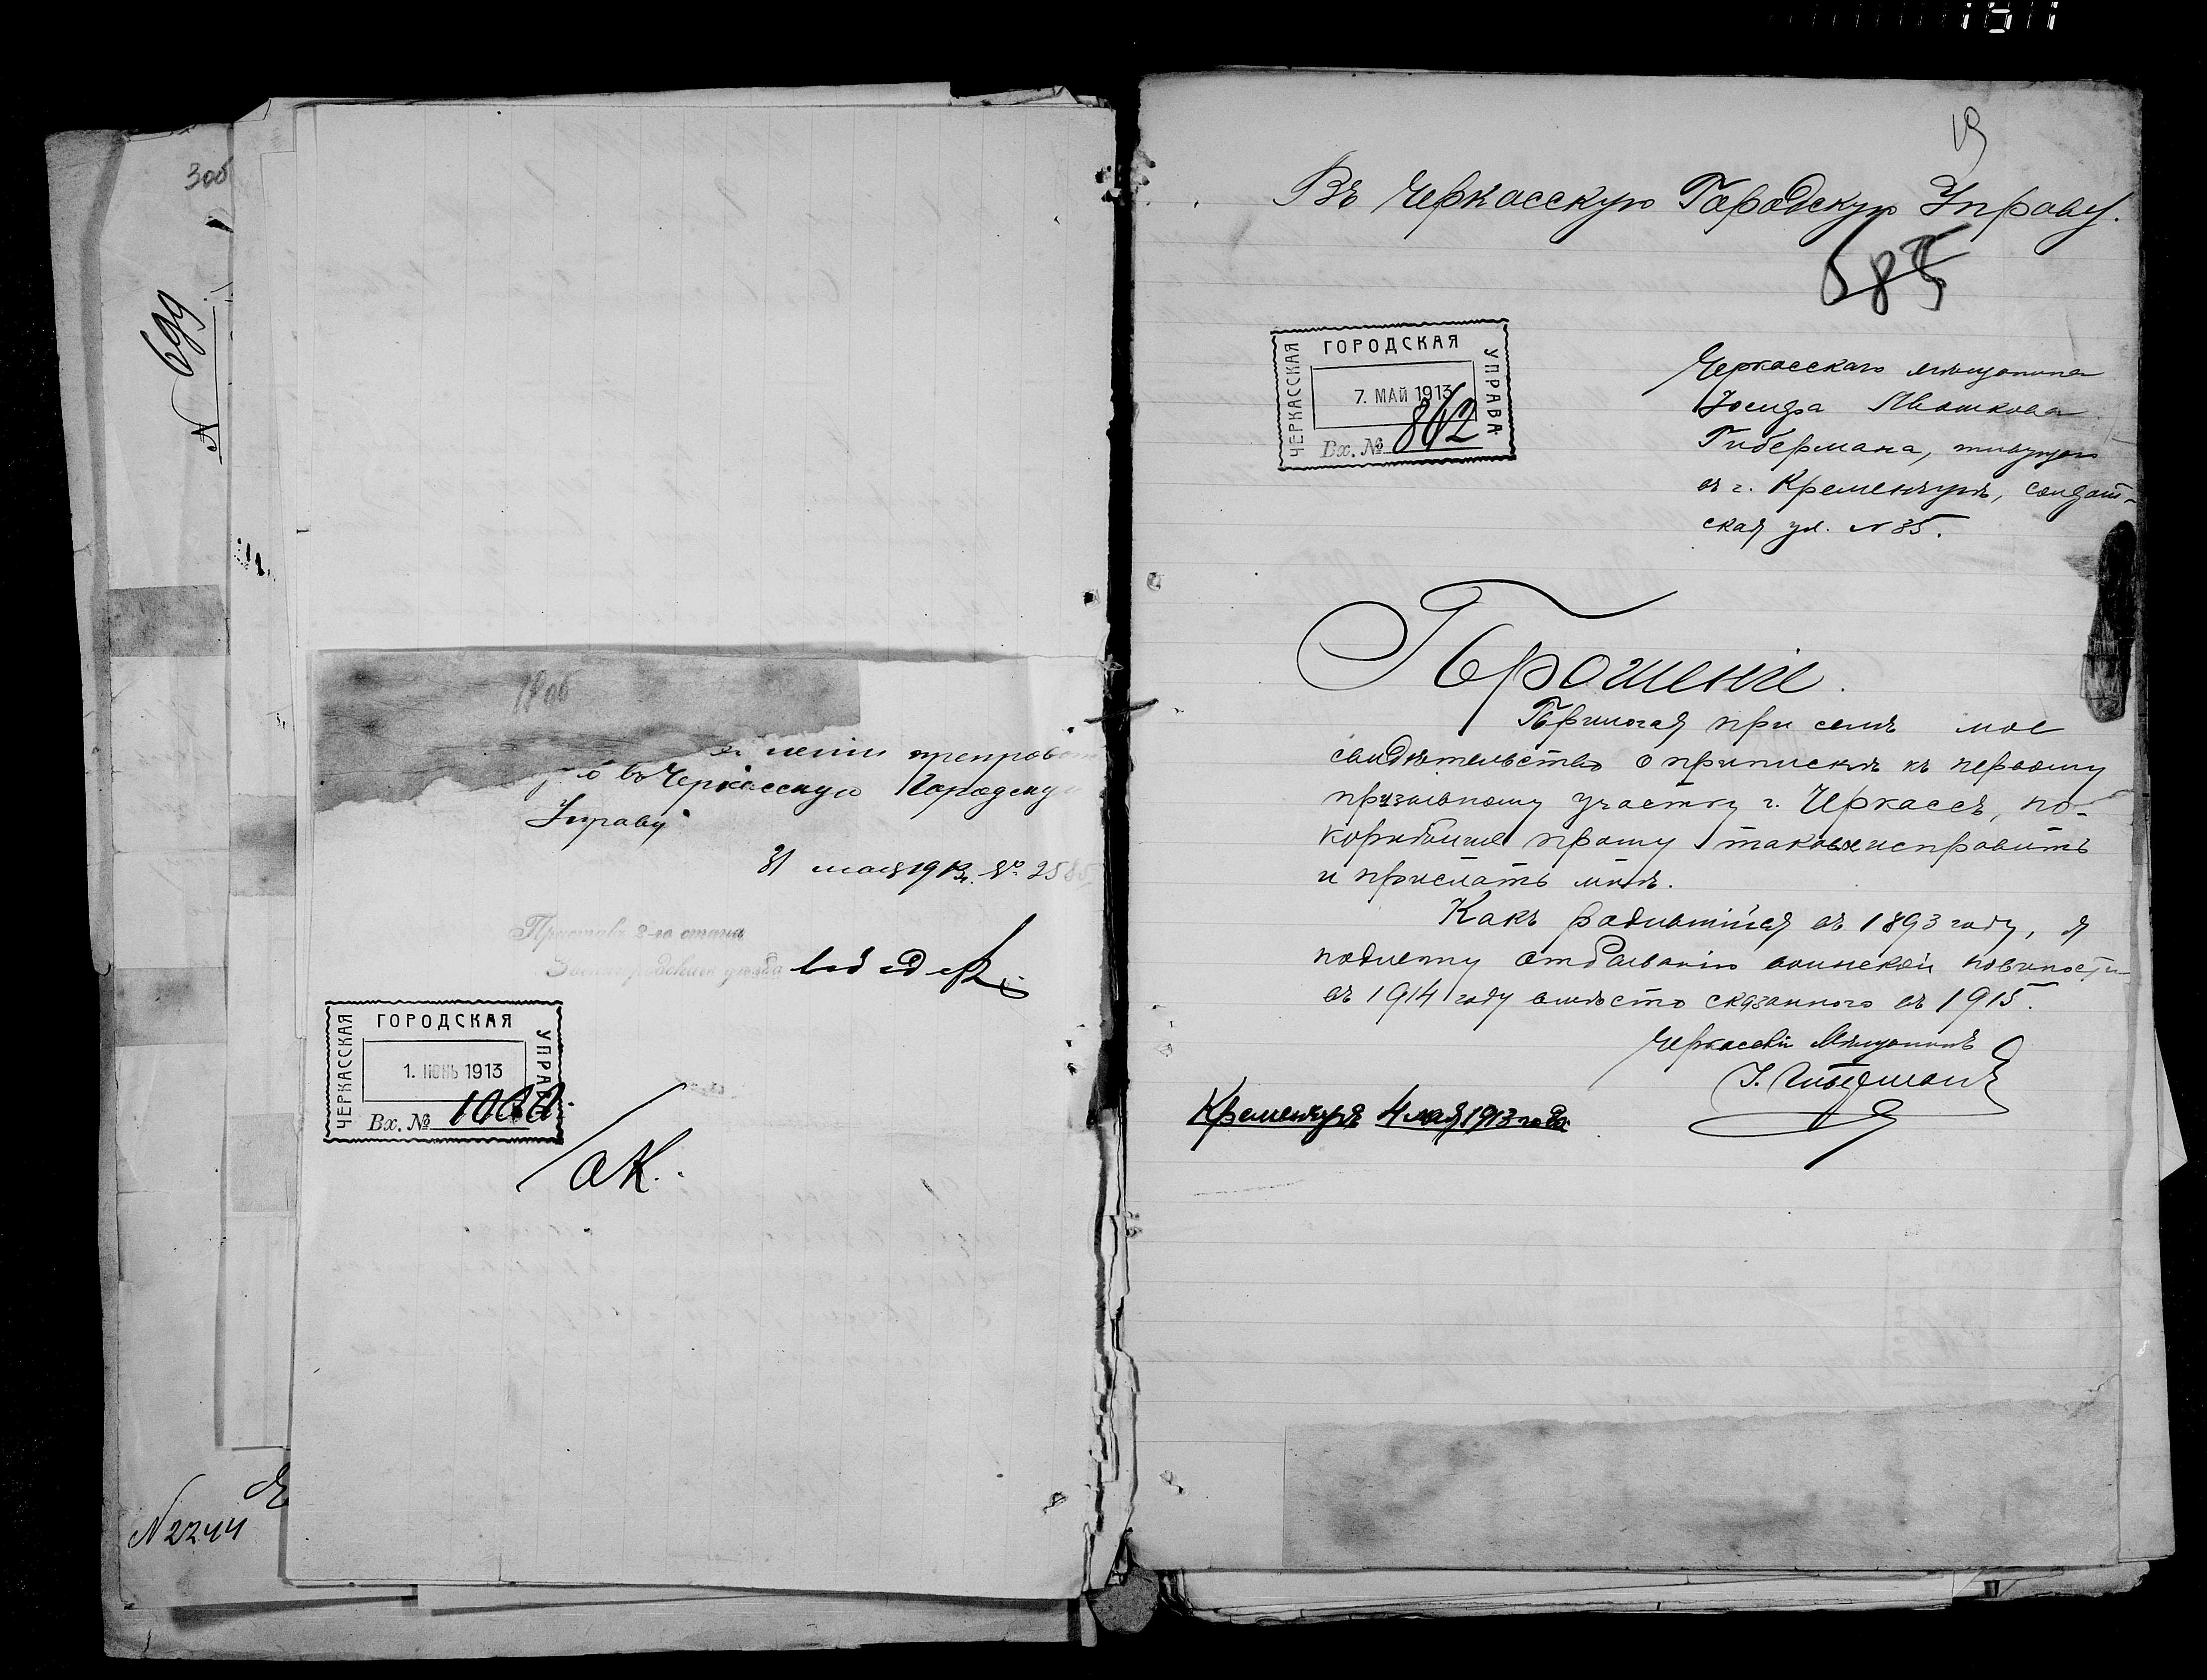 3об
N 699
N 2244
18 об
въ Черкасскую Городскую
Управу
31 мая 1913 г. № 2585
Приставъ 2-го стана
уѣзда
ЧЕРКАССКАЯ ГОРОДСКАЯ УПРАВА
1. ІЮНЬ 1913
Вх. №
19
Въ Черкасскую Городскую Управу.
585
ЧЕРКАССКАЯ ГОРОДСКАЯ УПРАВА
7. МАЙ 1913
Вх. № 862
Черкасскаго мѣщанина
Іосифа Ивашкова
Гибермана, живущаго
въ г. Кременчугѣ, Солдат-
ская ул. № 35.
Прошеніе.
Прилогая при семъ мое
свидѣтельство о припискѣ къ первому
призывному участку г. Черкассъ, по-
корнѣйше прошу таковое исправить
и прислать мнѣ.
Какъ родившійся въ 1893 году, я
подлежу отбыванію воинской повиности
въ 1914 году вмѣсто сказанного въ 1915.
Черкасскій Мѣщанинъ
І. Гиберманъ
Кременчугъ 4 мая 1913 года.